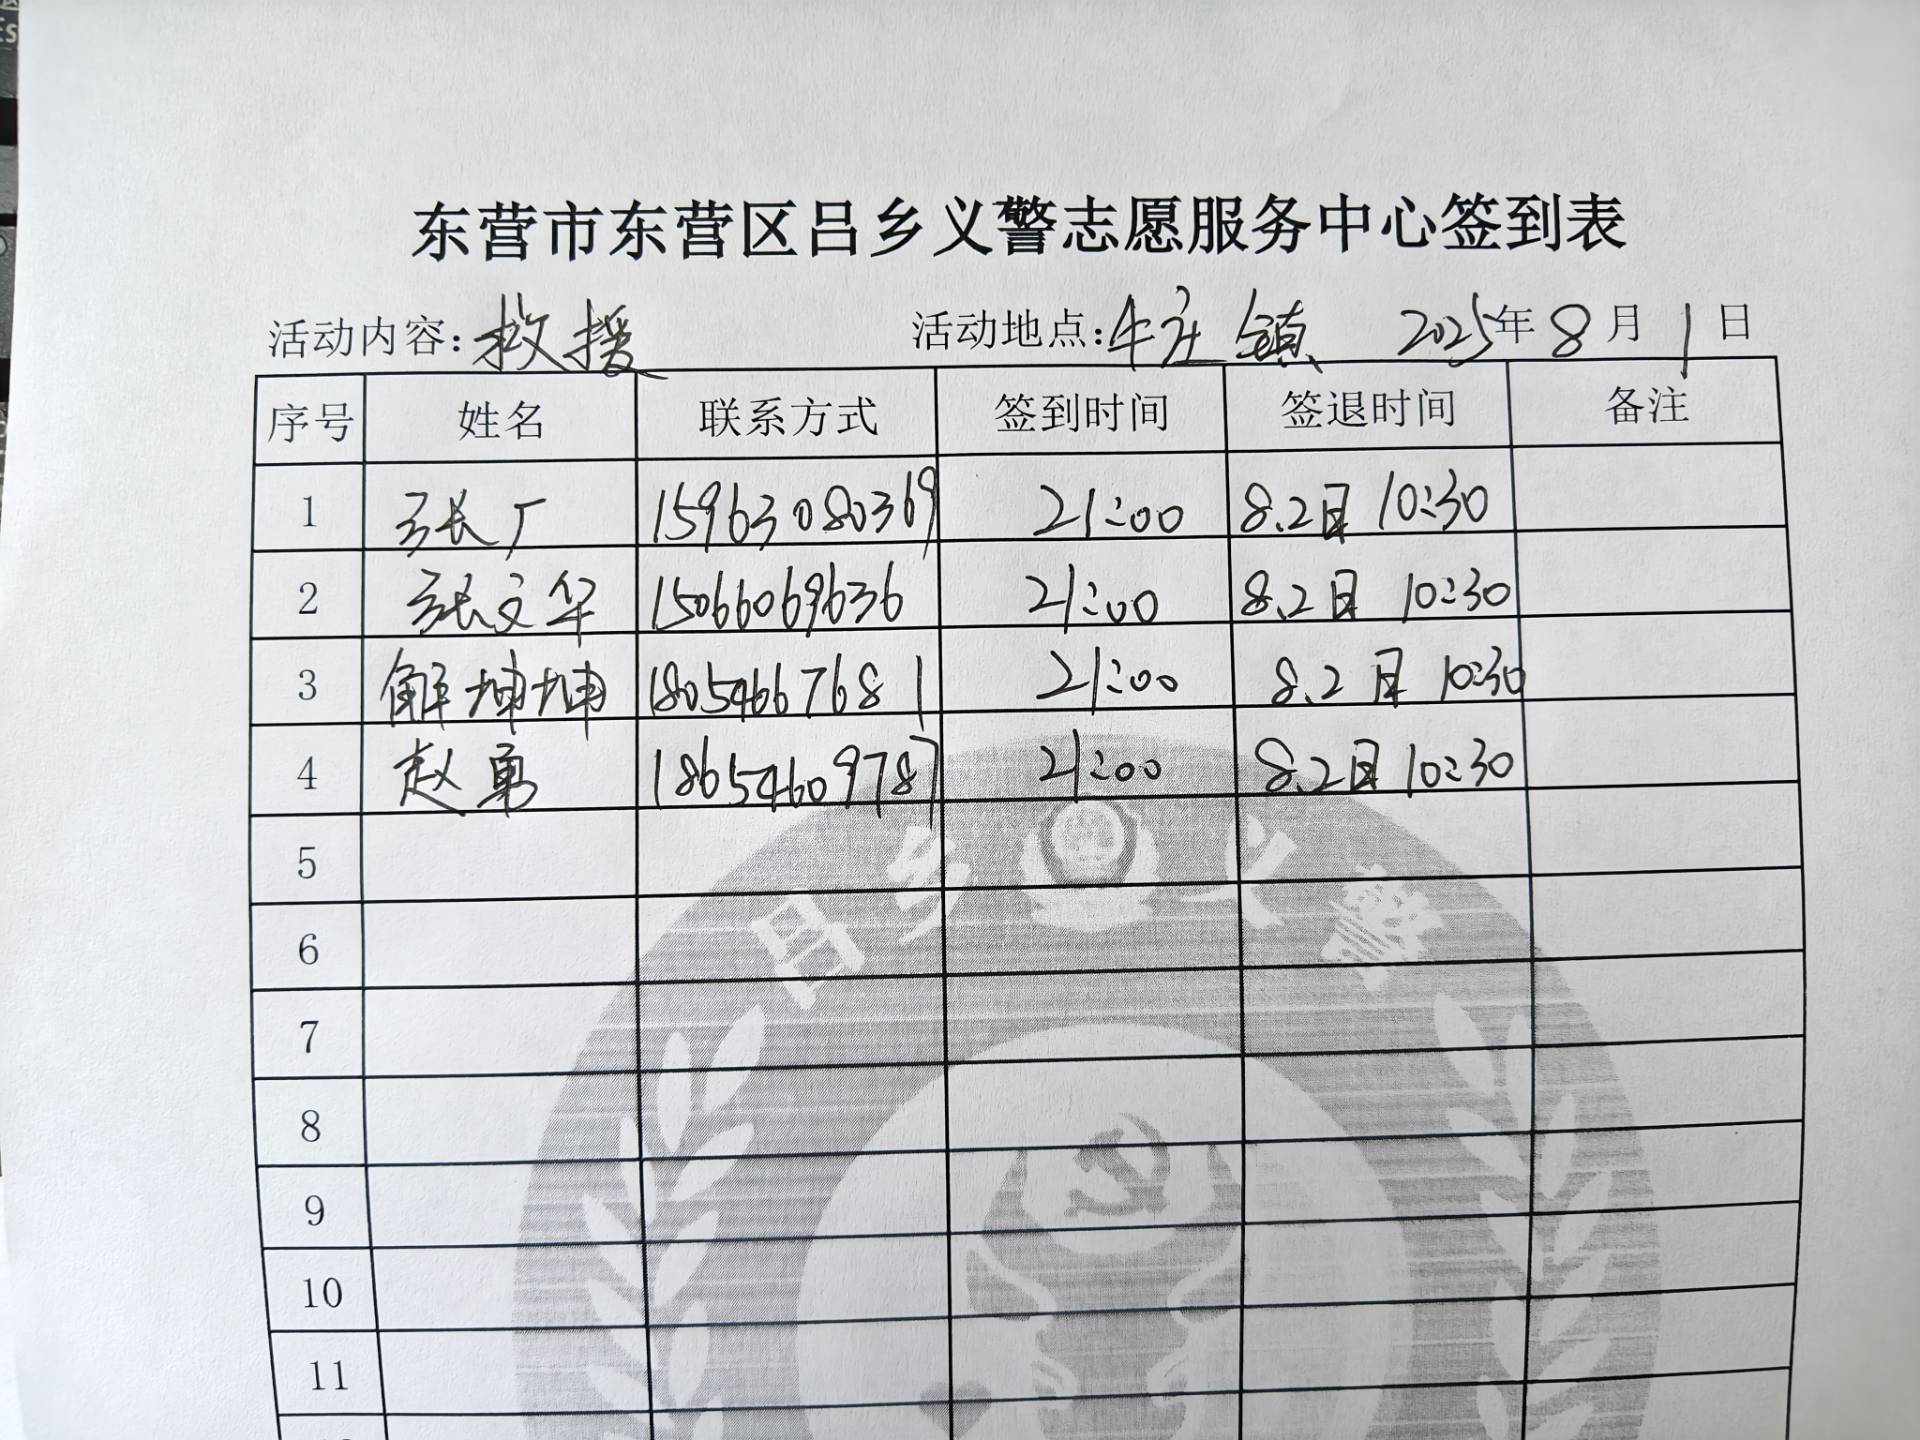 东营市东营区吕乡义警志愿服务中心签到表
活动内容：救援 活动地点：牛庄镇 2025年8月1日
序号 姓名 联系方式 签到时间 签退时间 备注
1 张广 15963080369 21:00 8.2日 10:30
2 张文华 15066069636 21:00 8.2日 10:30
3 解坤坤 18054667681 21:00 8.2日 10:30
4 赵勇 18654609787 21:00 8.2日 10:30
5
吕乡义警
6
7
8
9
10
11